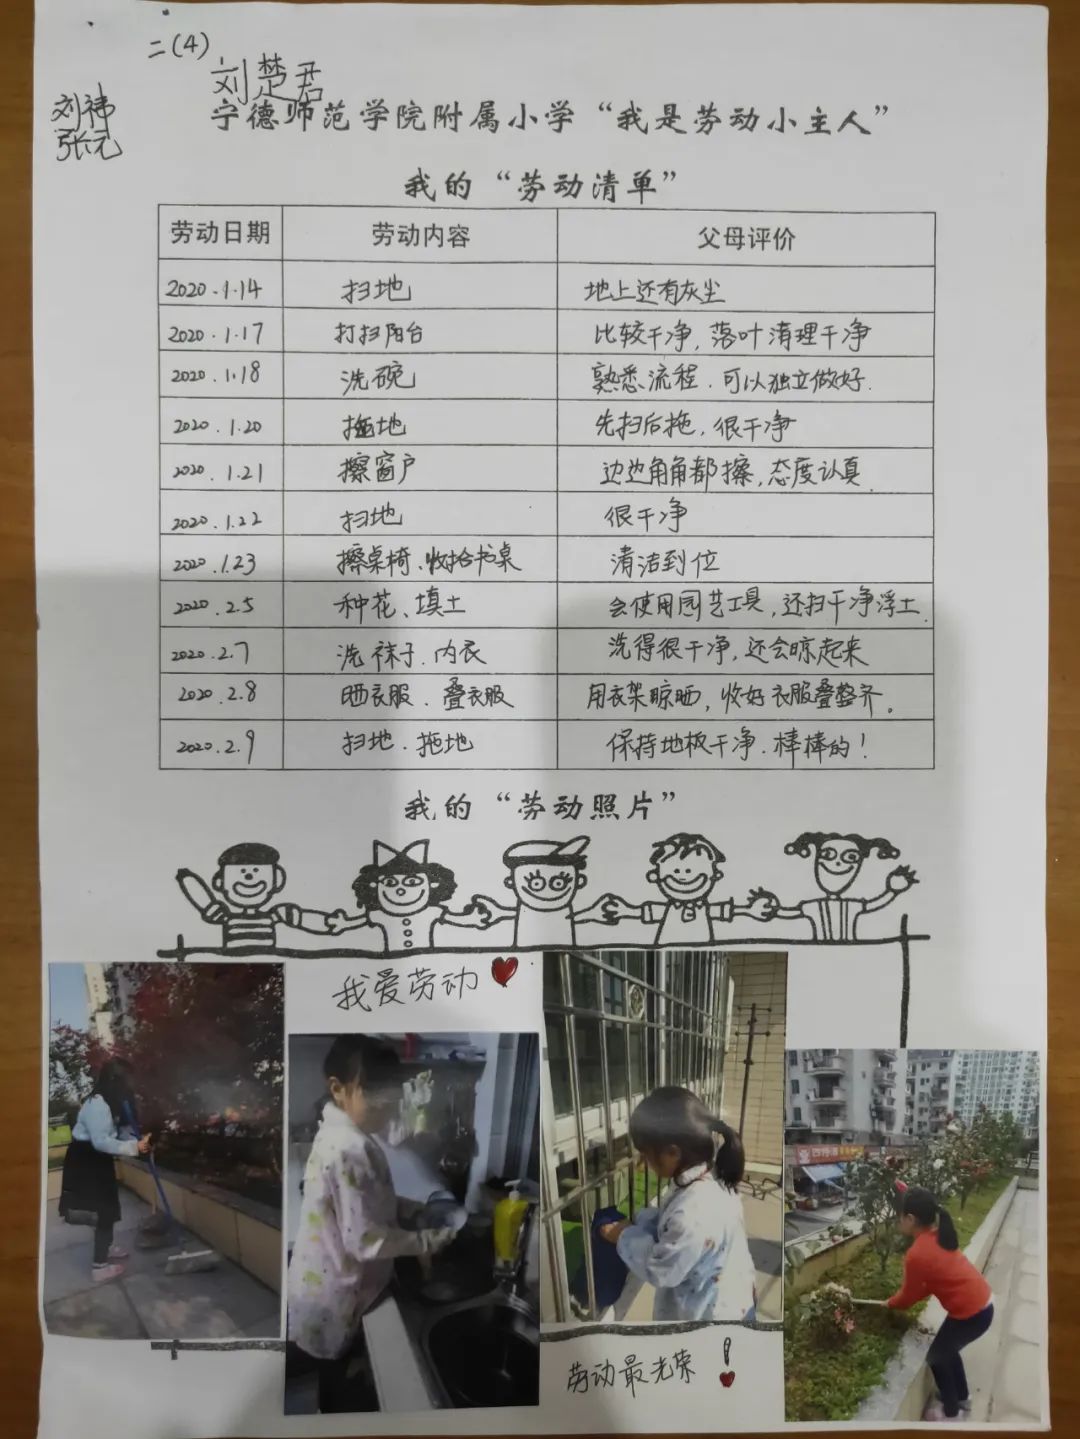 二(4)
刘楚君
刘祎
张元
宁德师范学院附属小学“我是劳动小主人”
我的“劳动清单”
劳动日期 劳动内容 父母评价
2020.1.14 扫地 地上还有灰尘
2020.1.17 打扫阳台 比较干净,落叶清理干净
2020.1.18 洗碗 熟悉流程.可以独立做好.
2020.1.20 拖地 先扫后拖,很干净
2020.1.21 擦窗户 边边角角都擦,态度认真.
2020.1.22 扫地 很干净
2020.1.23 擦桌椅、收拾书桌 清洁到位
2020.2.5 种花、填土 会使用园艺工具,还扫干净浮土.
2020.2.7 洗袜子.内衣 洗得很干净,还会晾起来
2020.2.8 晒衣服.叠衣服 用衣架晾晒,收好衣服叠整齐。
2020.2.9 扫地.拖地 保持地板干净.棒棒的!
我的“劳动照片”
我爱劳动
劳动最光荣!